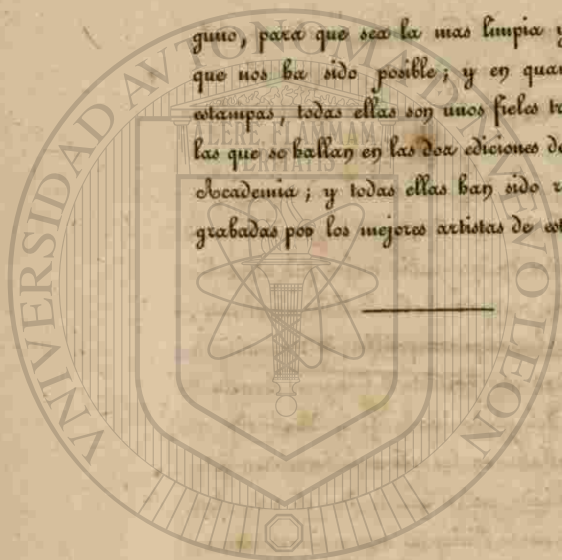 guno, para que sea la mas limpia y
que nos ha sido posible; y en quan
estampas, todas ellas son unos fieles tr
las que se hallan en las dos ediciones de
Academia; y todas ellas han sido r
grabadas por los mejores artistas de est
UNIVERSIDAD AVTONOMA DE NVEVO LEON
ALERE FLAMMAM
VERITATIS